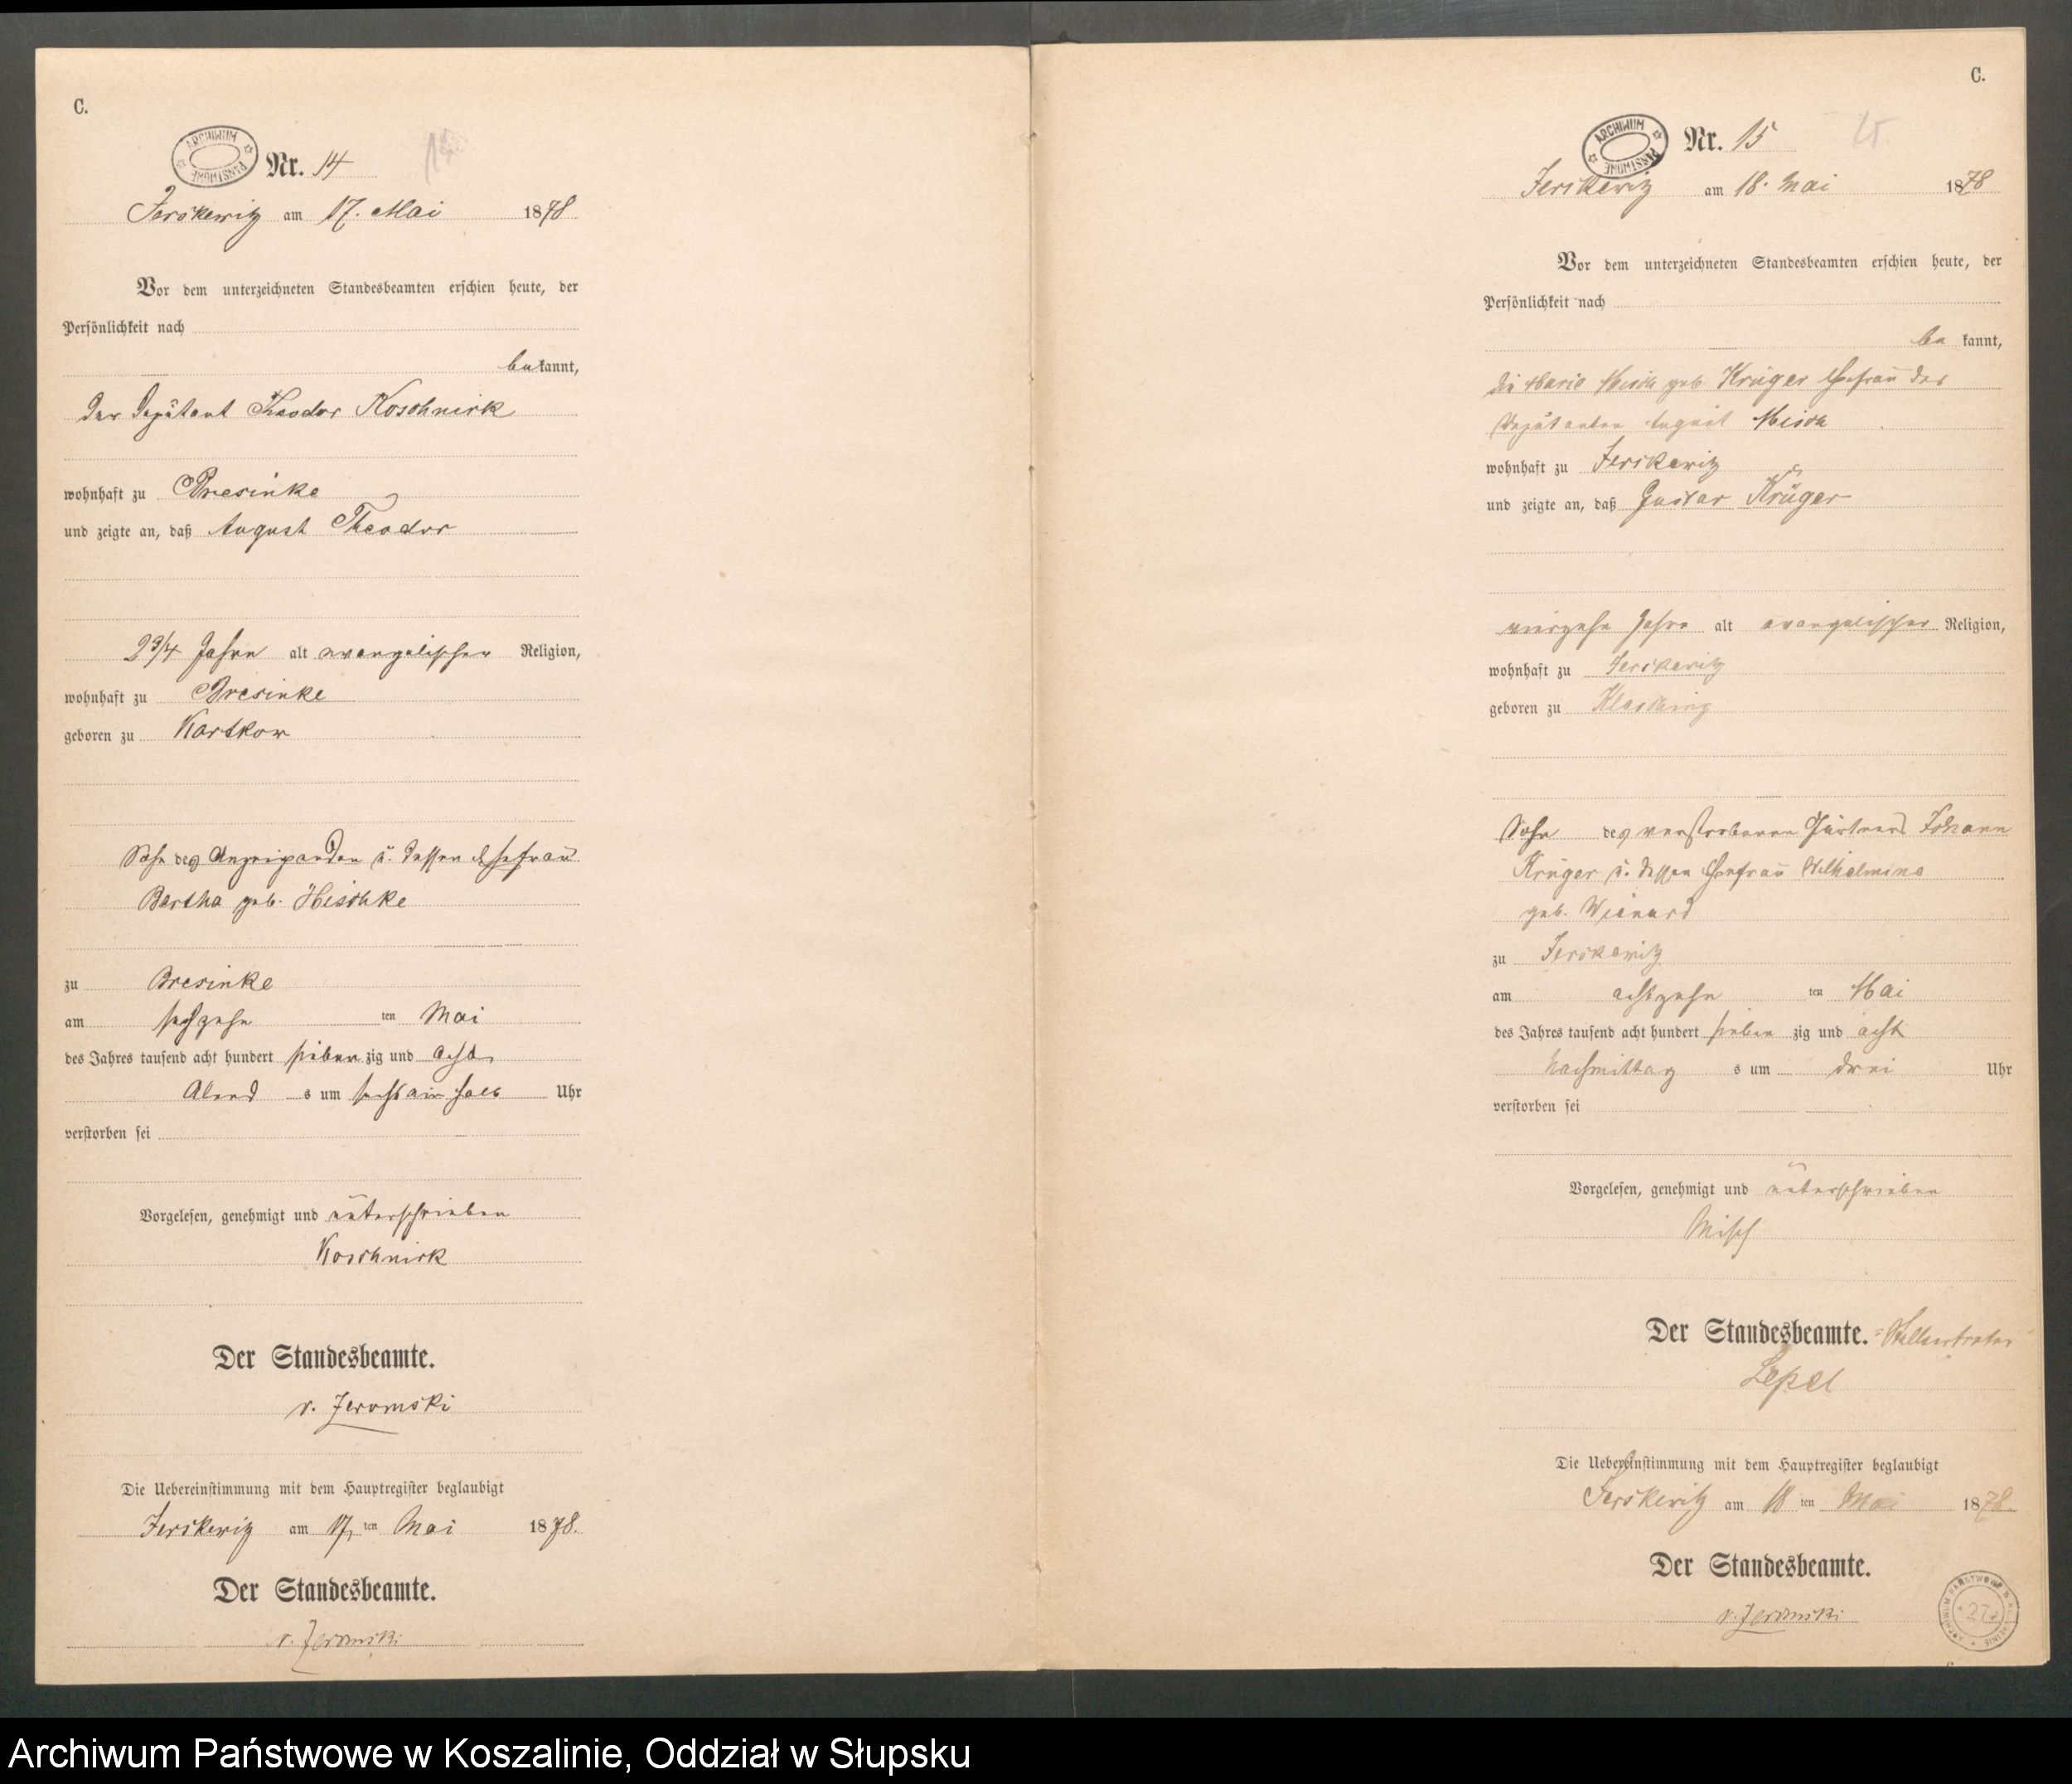 C.
ARCHIWUM PAŃSTWOWE
Nr. 14
Jerskewitz am 17. Mai 1878
Vor dem unterzeichneten Standesbeamten erschien heute, der
Persönlichkeit nach
bekannt,
der Deputant Theodor Koschnick
wohnhaft zu Bresinke
und zeigte an, daß August Theodor
2 3/4 Jahre alt evangelischer Religion,
wohnhaft zu Bresinke
geboren zu Kartkow
Sohn des Anzeigenden u. dessen Ehefrau
Bertha geb.
zu Bresinke
am sechzehn ten Mai
des Jahres tausend acht hundert sieben zig und acht
Abend s um sechs ein halb Uhr
verstorben sei
Vorgelesen, genehmigt und unterschrieben
Koschnick
Der Standesbeamte.
v. Jeromski
Die Uebereinstimmung mit dem Hauptregister beglaubigt
Jerskewitz am 17 ten Mai 1878.
Der Standesbeamte.
v. Jeromski
C.
ARCHIWUM PAŃSTWOWE
Nr. 15
15
Jerskewitz am 18. Mai 1878
Vor dem unterzeichneten Standesbeamten erschien heute, der
Persönlichkeit nach
be kannt,
die Marie Misch geb. Krüger Ehefrau des
Deputanten August Misch
wohnhaft zu Jerskewitz
und zeigte an, daß Gustav Krüger
vierzehn Jahre alt evangelischer Religion,
wohnhaft zu Jerskewitz
geboren zu
Sohn des verstorbenen Gärtners Johann
Krüger u. dessen Ehefrau Wilhelmine
geb.
zu Jerskewitz
am achtzehn ten Mai
des Jahres tausend acht hundert sieben zig und acht
Nachmittag s um drei Uhr
verstorben sei
Vorgelesen, genehmigt und unterschrieben
Misch
Der Standesbeamte. Stellvertreter
Lepel
Die Uebereinstimmung mit dem Hauptregister beglaubigt
Jerskewitz am 18 ten Mai 1878
Der Standesbeamte.
v. Jeromski
Archiwum Państwowe w Koszalinie, Oddział w Słupsku